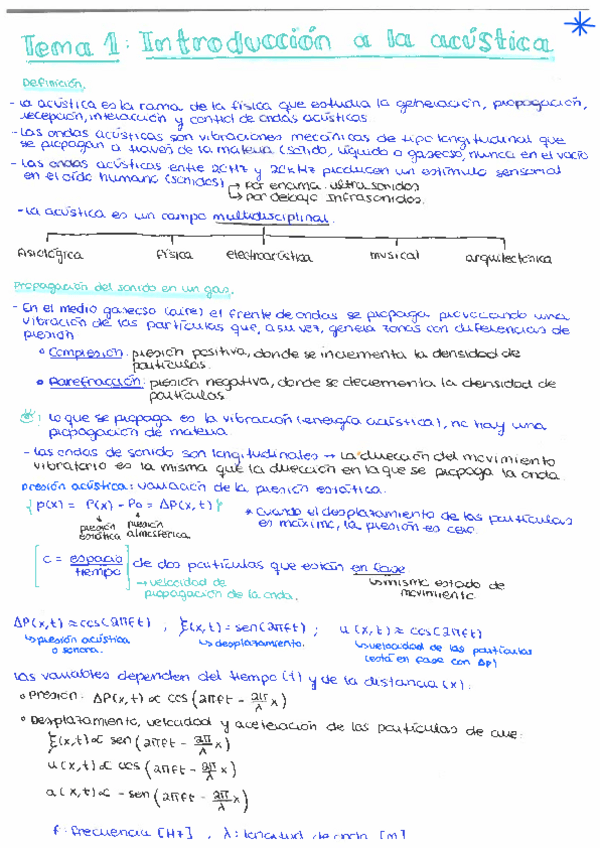 Tema 1: Introducción a la acústica
Definición.
- La acústica es la rama de la física que estudia la generación, propagación,
recepción, interacción y control de ondas acústicas
- Las ondas acústicas son vibraciones mecánicas de tipo longitudinal que
se propagan a través de la materia (sólido, líquido o gaseoso, nunca en el vacío
- Las ondas acústicas entre 20Hz y 20kHz producen un estímulo sensorial
en el oído humano (sonidos) → por encima: ultrasonidos
↳ por debajo: infrasonidos.
- La acústica es un campo multidisciplinal.
fisiológica física electroacústica musical arquitectónica
Propagación del sonido en un gas.
- En el medio gaseoso (aire) el frente de ondas se propaga provocando una
vibración de las partículas que, a su vez, genera zonas con diferencias de
presión
• Compresión: presión positiva, donde se incrementa la densidad de
partículas.
• Rarefracción: presión negativa, donde se decrementa la densidad de
partículas
: lo que se propaga es la vibración (energía acústica), no hay una
propagación de materia.
- Las ondas de sonido son longitudinales → La dirección del movimiento
vibratorio es la misma que la dirección en la que se propaga la onda.
presión acústica: variación de la presión estática.
{ p(x) = P(x) - Po = ΔP(x,t) } * Cuando el desplazamiento de las partículas
es máximo, la presión es cero.
presión estática presión atmosférica
[ c = espacio/tiempo ] de dos partículas que están en fase
→ velocidad de propagación de la onda. ↳ mismo estado de movimiento
ΔP(x,t) ≈ cos(2πft) ; ξ(x,t) = sen(2πft) ; u(x,t) ≈ cos(2πft)
↳ presión acústica o sonora. ↳ desplazamiento. ↳ velocidad de las partículas (está en fase con ΔP)
Las variables dependen del tiempo (t) y de la distancia (x):
• Presión: ΔP(x,t) ∝ cos(2πft - 2π/λ x)
• Desplazamiento, velocidad y aceleración de las partículas de aire:
ξ(x,t) ∝ sen(2πft - 2π/λ x)
u(x,t) ∝ cos(2πft - 2π/λ x)
a(x,t) ∝ -sen(2πft - 2π/λ x)
f: frecuencia [Hz] , λ: longitud de onda [m]